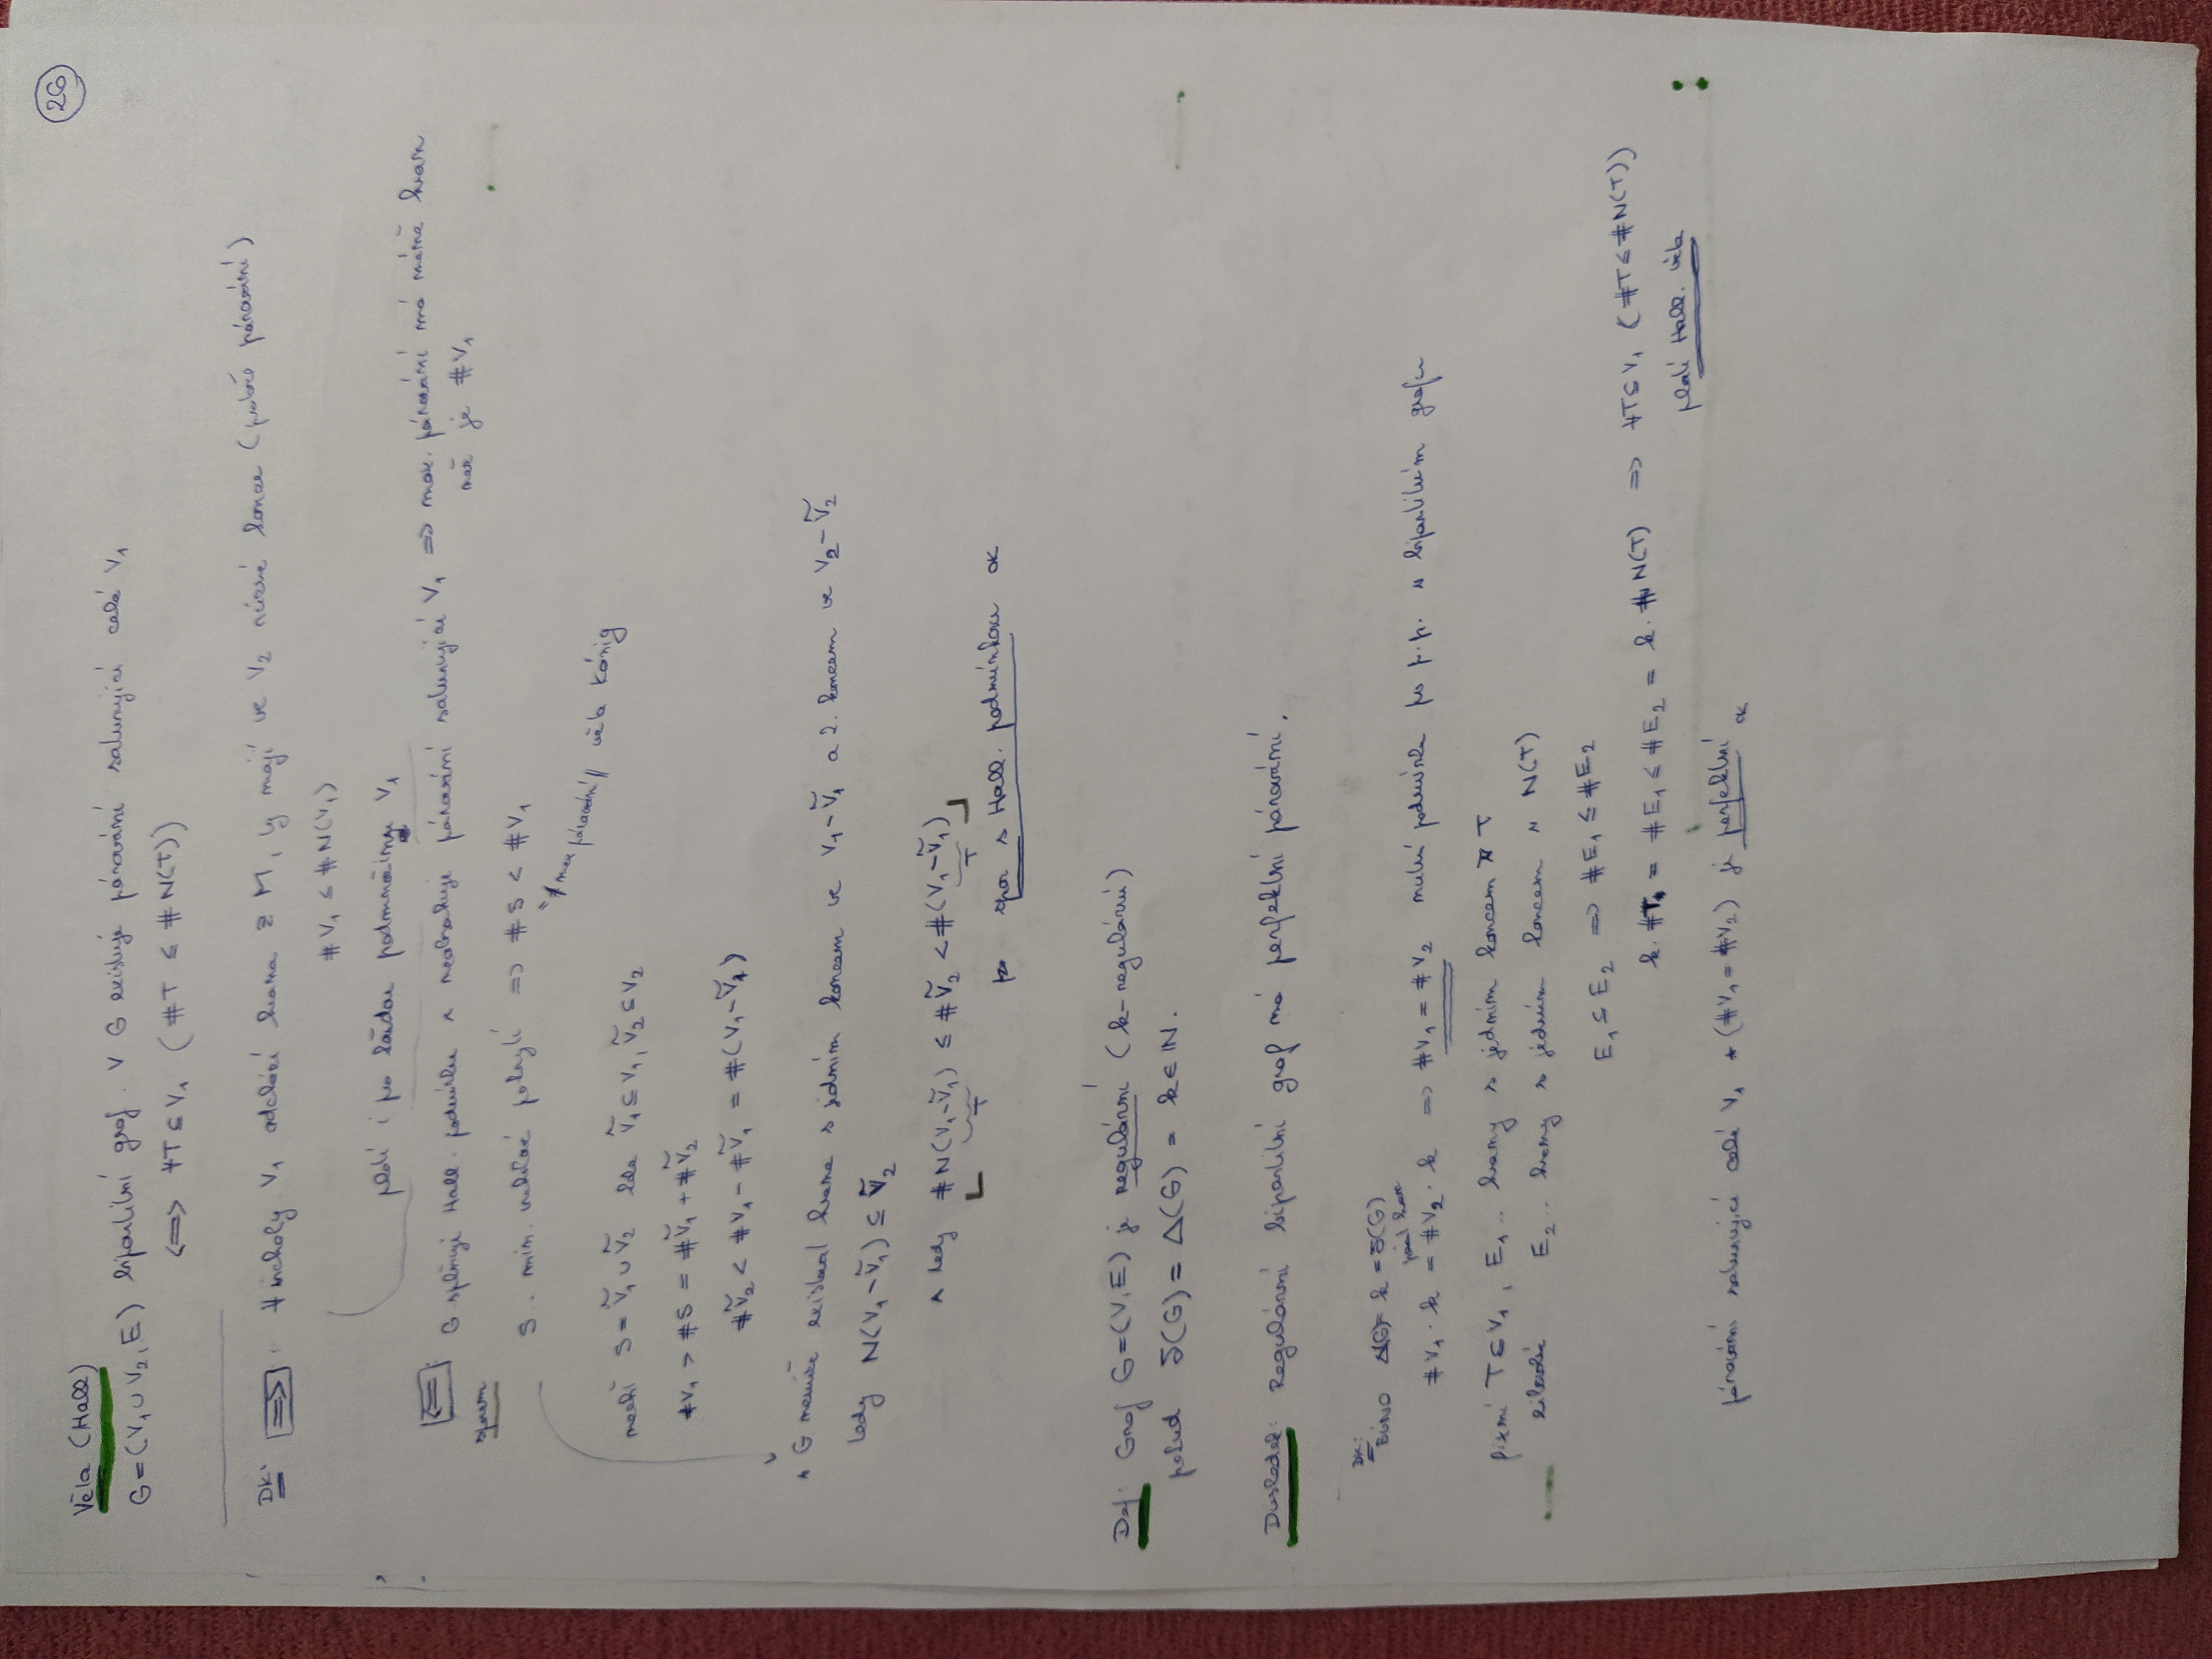 26
Věta (Hall)
G=(V₁∪V₂,E) bipartitní graf. V G existuje párování saturující celé V₁
⟺ ∀T⊆V₁ (#T ≤ #N(T))
Dk: ⟹: ∀vrcholy V₁ odchází hrana z M, ty mají ve V₂ různé konce (právě párování)
#V₁ ≤ #N(V₁)
platí i pro každou podmnožinu V₁
⟸ G splňuje Hall. podmínku ∧ neobsahuje párování saturující V₁ ⟹ max. párování má méně hran
než je #V₁
sporem
S.. min. vrcholové pokrytí ⟹ #S < #V₁
"max párování" věta König
nechť S=Ṽ₁∪Ṽ₂ kde Ṽ₁⊆V₁, Ṽ₂⊆V₂
#V₁ > #S = #Ṽ₁ + #Ṽ₂
#Ṽ₂ < #V₁ - #Ṽ₁ = #(V₁-Ṽ₁)
∧ G nemůže existovat hrana s jedním koncem ve V₁-Ṽ₁ a 2. koncem ve V₂-Ṽ₂
tedy N(V₁-Ṽ₁) ⊆ Ṽ₂
∧ tedy #N(V₁-Ṽ₁) ≤ #Ṽ₂ < #(V₁-Ṽ₁)
T T
spor s Hall. podmínkou OK
Def: Graf G=(V,E) je regulární (k-regulární)
pokud δ(G) = Δ(G) = k∈ℕ.
Důsledek: Regulární bipartitní graf má perfektní párování.
Dk:
BÚNO Δ(G)= k =δ(G)
počet hran
#V₁·k = #V₂·k ⟹ #V₁=#V₂ nutná podmínka pro p.p. v bipartitním grafu
fixní T⊆V₁, E₁.. hrany s jedním koncem v T
libovolné E₂.. hrany s jedním koncem v N(T)
E₁⊆E₂ ⟹ #E₁≤#E₂
k.#T = #E₁≤#E₂ = k.#N(T) ⟹ ∀T⊆V₁ (#T≤#N(T))
platí Hall. věta
párování saturující celé V₁ * (#V₁=#V₂) je perfektní OK